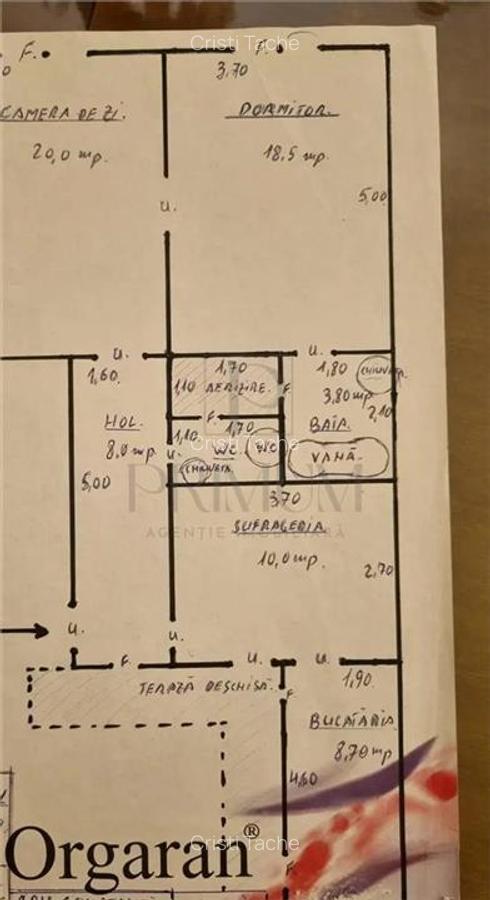 Cristi Tache
F.
F.
3,70
CAMERA DE ZI.
DORMITOR.
20,0 mp.
18,5 mp.
5,00
U.
U.
U.
1,60.
1,70
1,80
CHIUVETA.
1,10 AERIZIRE.
F.
3,80 mp
2,10
HOL.
F.
1,70
BAIA.
8,0 mp.
1,10
WC.
WC
VANĂ.
U.
CHIUVETA.
5,00
3,70
PRIMUM
AGENȚIE IMOBILIARĂ
SUFRAGERIA
10,0 mp.
2,70
U.
U.
F.
U.
U.
TERAZĂ DESCHISĂ.
F.
1,90.
BUCATĂRIA
8,70 mp
4,60
Orgaran®
Cristi Tache
F.